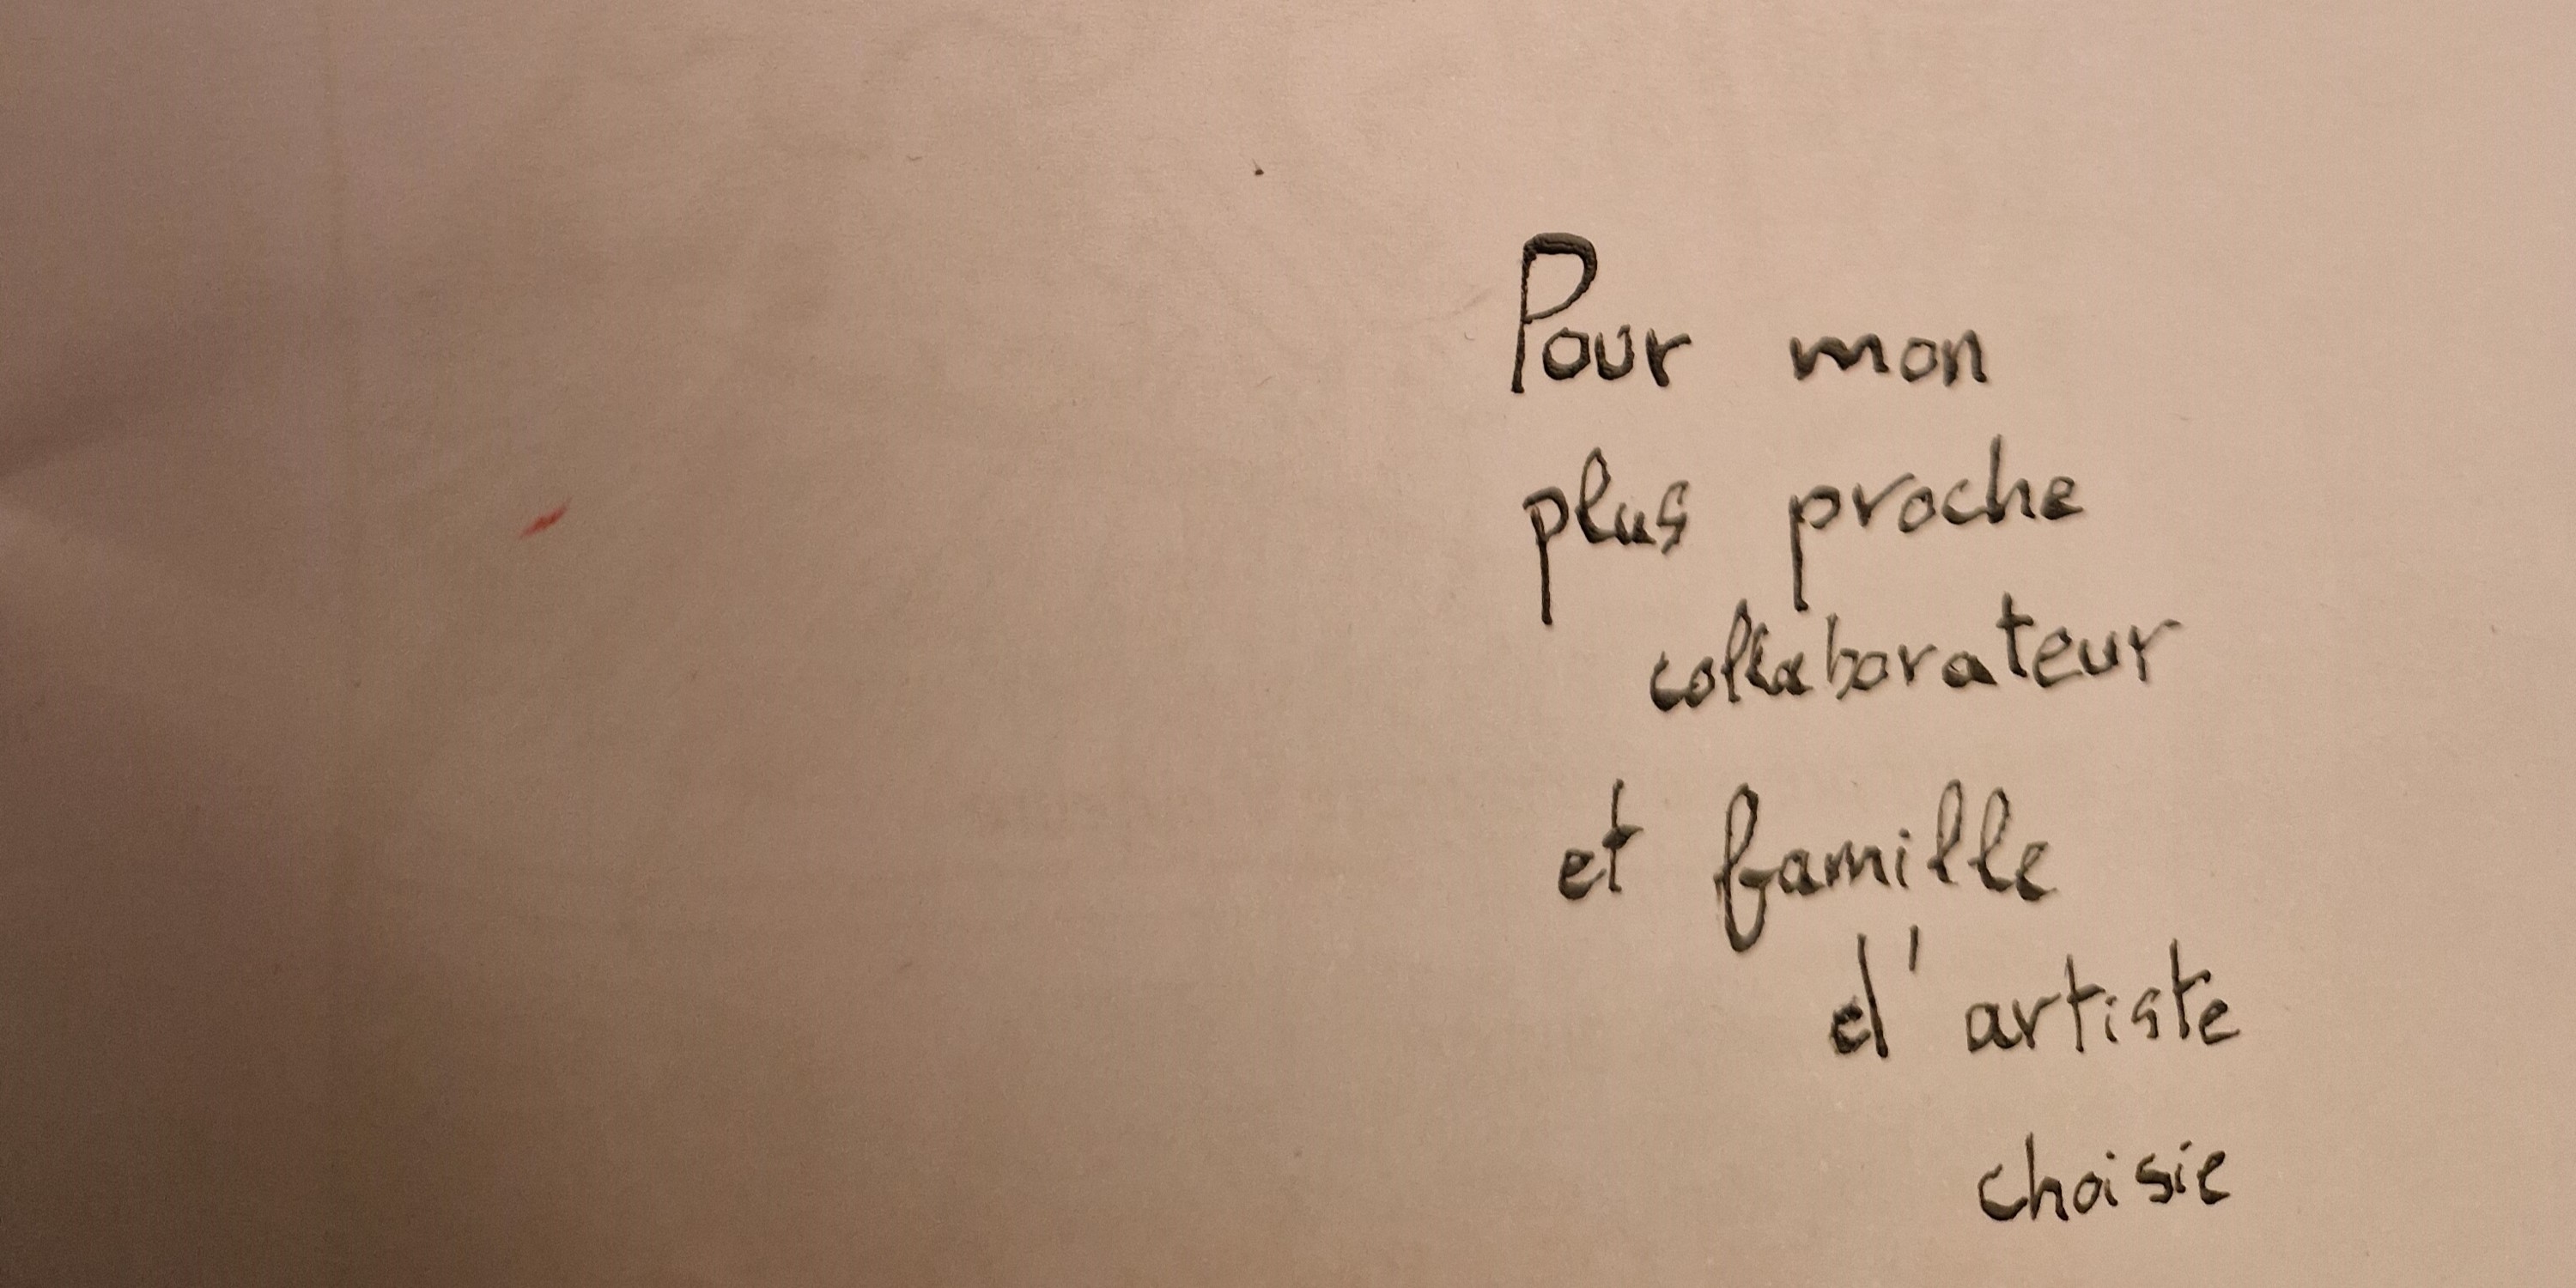 Pour mon
plus proche
collaborateur
et famille
d'artiste
choisie